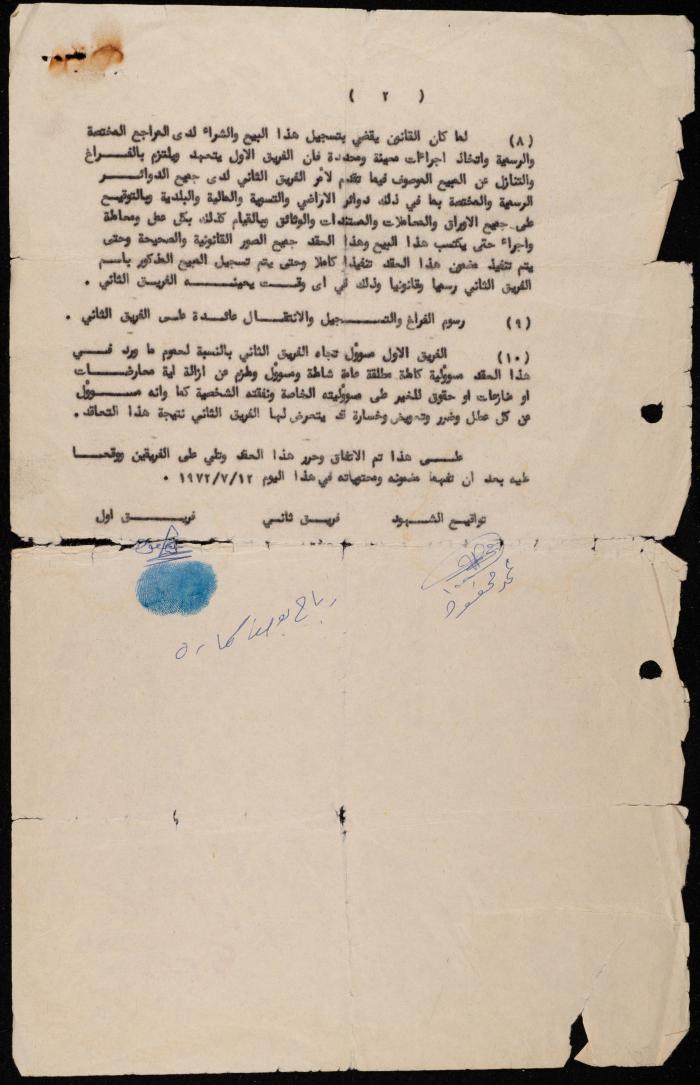 ( ٢ )
(٨) لما كان القانون يقضي بتسجيل هذا البيع والشراء لدى المراجع المختصة
والرسمية واتخاذ اجراءات معينة ومحددة فان الفريق الاول يتعهد ويلتزم بالفــراغ
والتنازل عن المبيع الموصوف فيما تقدم لامر الفريق الثاني لدى جميع الدوائــر
الرسمية والمختصة بما في ذلك دوائر الاراضي والتسوية والمالية والبلدية وبالتوقيع
على جميع الاوراق والمعاملات والمستندات والوثائق وبالقيام كذلك بكل عمل ومعاملة
واجراء حتى يكتسب هذا البيع وهذا العقد جميع الصور القانونية والصحيحة وحتى
يتم تنفيذ مضمون هذا العقد تنفيذا كاملا وحتى يتم تسجيل المبيع المذكور باسم
الفريق الثاني رسميا وقانونيا وذلك في اى وقــت يعينــه الفريــق الثاني .
(٩) رسوم الفراغ والتــسجيل والانتقــال عائــدة علــى الفريق الثاني .
(١٠) الفريق الاول مسوؤل تجاه الفريق الثاني بالنسبة لعموم ما ورد فــي
هذا العقد مسوؤلية كاملة مطلقة عامة شاملة ومسوؤل وملزم عن ازالة اية معارضــات
او منازعات او حقوق للغير على مسوؤليته الخاصة ونفقته الشخصية كما وانه مســوؤل
عن كل عطل وضرر وتعويض وخسارة قد يتعرض لها الفريق الثاني نتيجة هذا التعاقد .
علــى هذا تم الاتفاق وحرر هذا العقد وتلي على الفريقين ووقعــا
عليه بعد ان تفهما مضمونه ومحتوياته في هذا اليوم ١٩٧٢/٧/١٢ .
تواقيع الشهــود فريــق ثانــي فريــق اول
محمد محمود
رباح